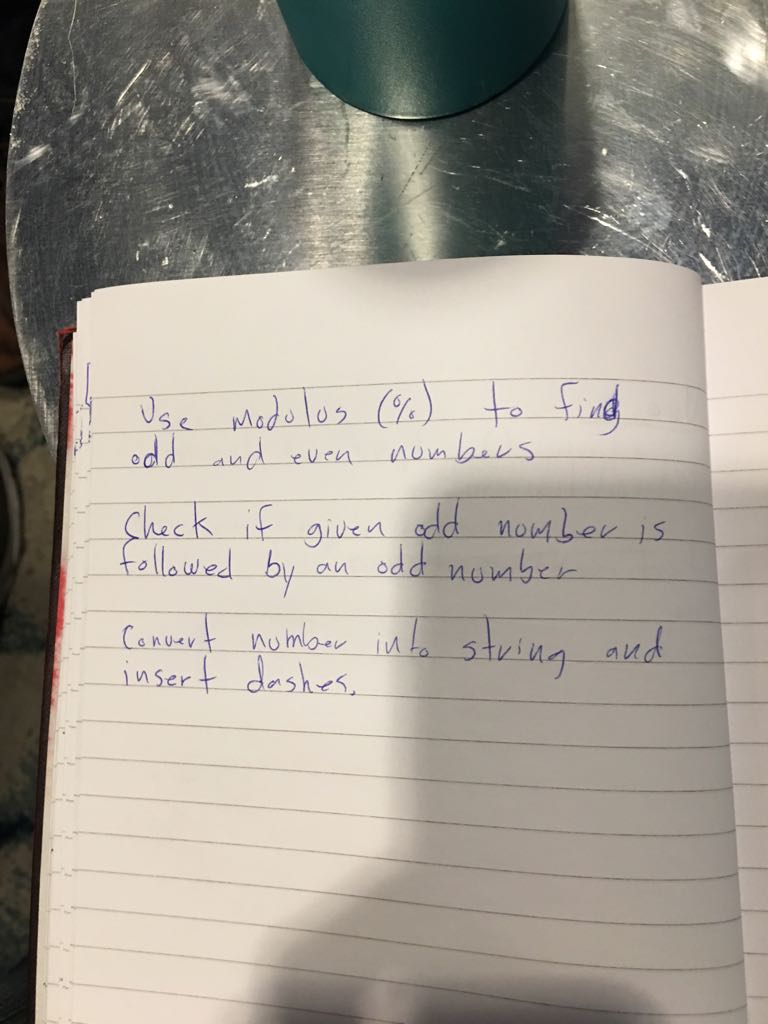 Use modulus (%) to find
odd and even numbers
Check if given odd number is
followed by an odd number
Convert number into string and
insert dashes.